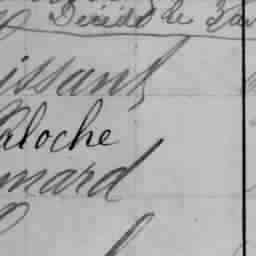 Décédé le
issant
aloche
mard